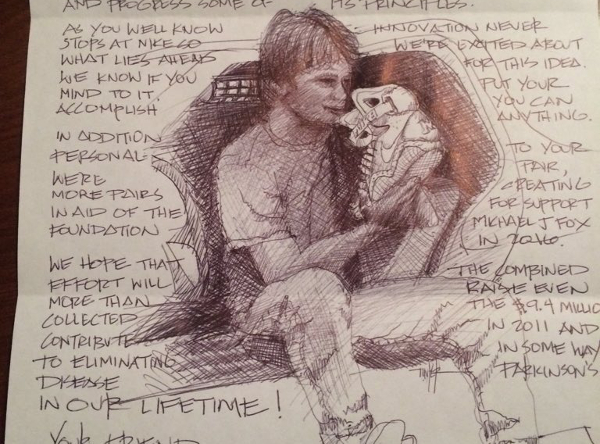 AND PROGRESS SOME OF ITS PRINCIPLES.
AS YOU WELL KNOW INNOVATION NEVER
STOPS AT NIKE SO WE'RE EXCITED ABOUT
WHAT LIES AHEAD FOR THIS IDEA.
WE KNOW IF YOU PUT YOUR
MIND TO IT. YOU CAN
ACCOMPLISH ANYTHING.
IN ADDITION TO YOUR
PERSONAL PAIR,
WE'RE CREATING
MORE PAIRS FOR SUPPORT
IN AID OF THE MICHAEL J FOX
FOUNDATION IN 2016.
WE HOPE THAT THE COMBINED
EFFORT WILL RAISE EVEN
MORE THAN THE $9.4 MILLIO
COLLECTED IN 2011 AND
CONTRIBUTE IN SOME WAY
TO ELIMINATING PARKINSON'S
DISEASE
IN OUR LIFETIME!
YOUR FRIEND